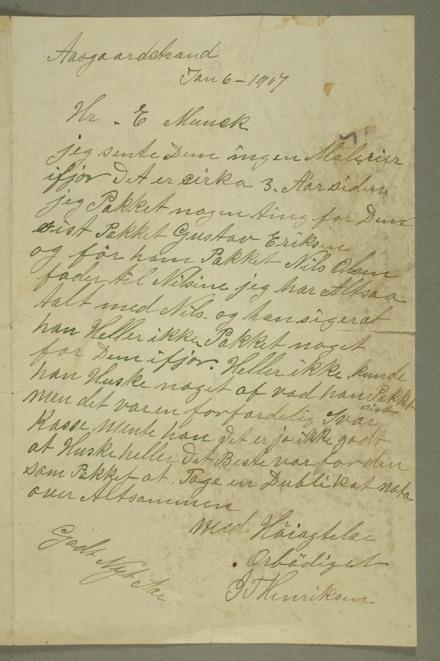 Aasgaardstrand
Jan 6 - 1907
Hr. E Munck
jeg sente Dem ingen Malerier
ifjor Det er sirka 3. Aar siden
jeg Pakket nogen ting for Dem
sist Pakket Gustav Eriksen
og før ham Pakket Nils Olsen
fader til Nilsine jeg har Altsaa
talt med Nils. og han siger at
han Heller ikke Pakket noget
for Dem ifjor. Heller ikke kunde
han Huske noget af vad han Pakket
sist
men det var en forfærdelig Svær
Kasse mente han det er jo ikke godt
at Huske heller Det Beste var for den
som Pakket at Tage en Dublikat nota
over Altsammen
med Høiagtelse
Ørbødigst
Henriksen
Godt Nyt Aar